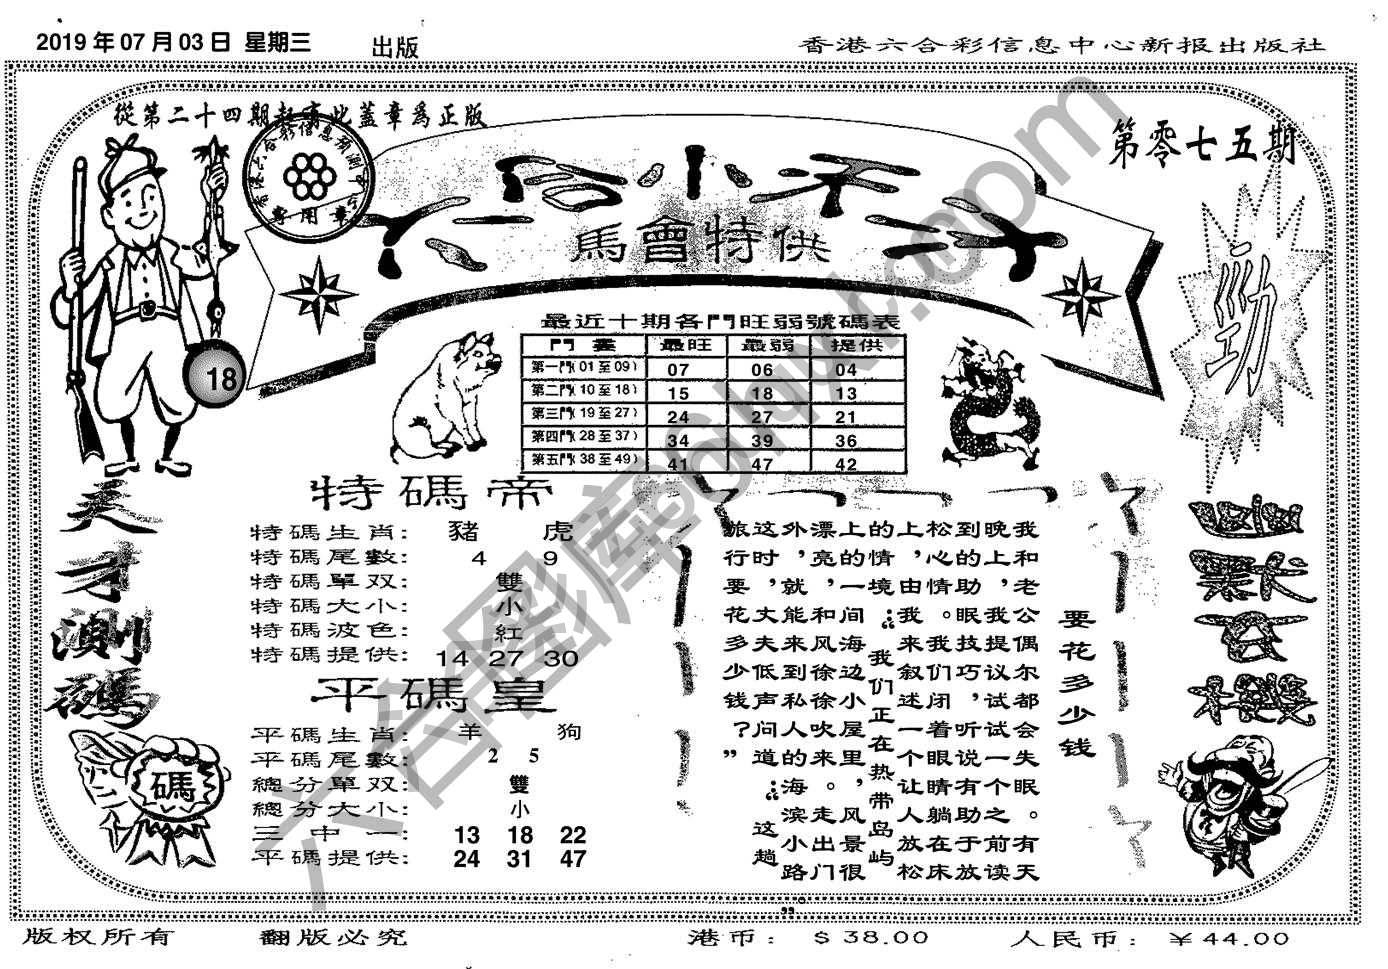 2019年07月03日 星期三 出版
香港六合彩信息中心新报出版社
從第二十四期起有此蓋章爲正版
第零七五期
馬會特供
勁
18
最近十期各門旺弱號碼表
最旺 最弱 提供
第一門(01至09) 07 06 04
第二門(10至18) 15 18 13
第三門(19至27) 24 27 21
第四門(28至37) 34 39 36
第五門(38至49) 41 47 42
天才測碼
特碼帝
特碼生肖: 豬 虎
特碼尾數: 4 9
特碼單双: 雙
特碼大小: 小
特碼波色: 紅
特碼提供: 14 27 30
平碼皇
平碼生肖: 羊 狗
平碼尾數: 2 5
總分單双: 雙
總分大小: 小
三中一: 13 18 22
平碼提供: 24 31 47
碼
要花多少钱
我和老公偶尔都会失眠。有天
晚上，我提议试试一个之前读
到的助眠技巧，听说有助于放
松心情。我们闭着眼睛躺在床
上，由我来叙述一个让人放松
的情境:“我们正在热带岛屿
上的一间海边小屋里，风景很
漂亮，和风徐徐吹来。走出门
外，就能来到私人的海滨小路
这时，丈夫低声问道:“这趟
旅行要花多少钱？”
版权所有 翻版必究
港币: $38.00 人民币: ¥44.00